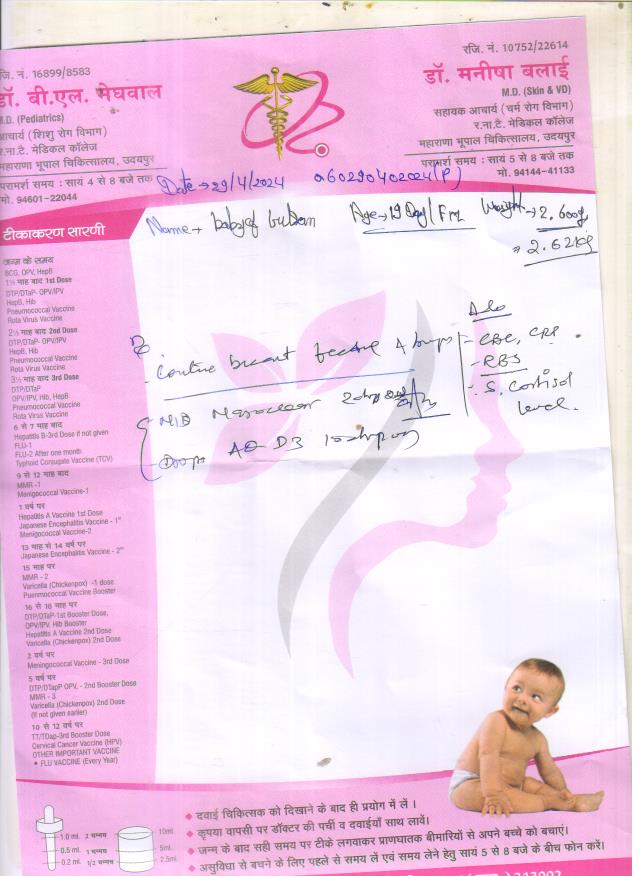 रजि. नं. 16899/8583
डॉ. बी.एल. मेघवाल
M.D. (Pediatrics)
आचार्य (शिशु रोग विभाग)
र.ना.टै. मेडिकल कॉलेज
महाराणा भूपाल चिकित्सालय, उदयपुर
परामर्श समय : सायं 4 से 8 बजे तक
मो. 94601-22044
रजि. नं. 10752/22614
डॉ. मनीषा बलाई
M.D. (Skin & VD)
सहायक आचार्य (चर्म रोग विभाग)
र.ना.टै. मेडिकल कॉलेज
महाराणा भूपाल चिकित्सालय, उदयपुर
परामर्श समय : सायं 5 से 8 बजे तक
मो. 94144-41133
Date → 29/4/2024
Name → baby of Age → 19 Day / Weight → 2.600
= 2.62 kg
टीकाकरण सारणी
जन्म के समय
BCG, OPV, HepB
1½ माह बाद 1st Dose
DTP/DTaP- OPV/IPV
HepB, Hib
Pneumococcal Vaccine
Rota Virus Vaccine
2½ माह बाद 2nd Dose
DTP/DTaP- OPV/IPV
HepB, Hib
Pneumococcal Vaccine
Rota Virus Vaccine
3½ माह बाद 3rd Dose
DTP/DTaP
OPV/IPV, Hib, HepB
Pneumococcal Vaccine
Rota Virus Vaccine
6 से 7 माह बाद
Hepatitis B-3rd Dose if not given
FLU-1
FLU-2 After one month
Typhoid Conjugate Vaccine (TCV)
9 से 12 माह बाद
MMR -1
Menigococcal Vaccine-1
1 वर्ष पर
Hepatitis A Vaccine 1st Dose
Japanese Encephalitis Vaccine - 1st
Menigococcal Vaccine-2
13 माह से 14 वर्ष पर
Japanese Encephalitis Vaccine - 2nd
15 माह पर
MMR - 2
Varicella (Chickenpox) -1 dose
Puenmococcal Vaccine Booster
16 से 18 माह पर
DTP/DTaP-1st Booster Dose,
OPV/IPV, Hib Booster
Hepatitis A Vaccine 2nd Dose
Varicella (Chickenpox) 2nd Dose
2 वर्ष पर
Meningococcal Vaccine - 3rd Dose
5 वर्ष पर
DTP/DTapP OPV, - 2nd Booster Dose
MMR - 3
Varicella (Chickenpox) 2nd Dose
(If not given earlier)
10 से 12 वर्ष पर
TT/TDap-3rd Booster Dose
Cervical Cancer Vaccine (HPV)
OTHER IMPORTANT VACCINE
• FLU VACCINE (Every Year)
breast feeding
Nasoclear
Drops D3
Adv
- CBC, CRP
- RBS
- S. Cortisol
level.
1.0 ml. 2 चम्मच 10ml
0.5 ml. 1 चम्मच 5ml.
0.2 ml. 1/2 चम्मच 2.5ml.
◆ दवाई चिकित्सक को दिखाने के बाद ही प्रयोग में लें ।
◆ कृपया वापसी पर डॉक्टर की पर्ची व दवाईयाँ साथ लावें।
◆ जन्म के बाद सही समय पर टीके लगवाकर प्राणघातक बीमारियों से अपने बच्चे को बचाएं।
◆ असुविधा से बचने के लिए पहले से समय लें एवं समय लेने हेतु सायं 5 से 8 के बीच फोन करें।